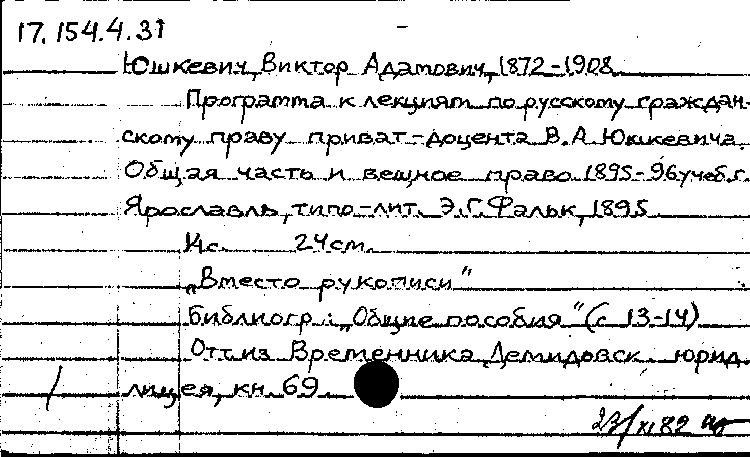 17.154.4.31
Юшкевич, Виктор Адамович, 1872-1908
Программа к лекциям по русскому граждан-
скому праву приват-доцента В.А Юшкевича.
Общая часть и вещное право 1895-96 учеб.г.
Ярославль, типо-лит. Э.Г.Фальк, 1895
14с. 24см.
„Вместо рукописи"
Библиогр.: „Общие пособия" (с 13-14)
Отт.из Временника Демидовск. юрид.
лицея, кн. 69.
23/XI 82